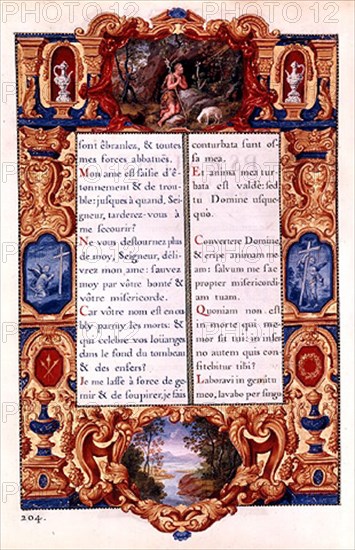 sont êbranlez, & toutes
mes forces abbatuës.
Mon ame est saisie d'é-
tonnement & de trou-
ble: jusques à quand, Sei-
gneur, tarderez-vous à
me secourir?
Ne vous destournez plus
de moy, Seigneur, déli-
vrez mon ame: sauvez
moy par vôtre bonté &
vôtre misericorde.
Car vôtre nom est en ou-
bly parmy les morts: &
qui celebre vos loüanges
dans le fond du tombeau
& des enfers?
Je me lasse à force de ge-
mir & de soupirer, je fais
conturbata sunt os-
sa mea.
Et anima mea tur-
bata est valdè: sed
tu Domine usque-
quò.
Convertere Domine,
& eripe animam me-
am: salvum me fac
propter misericordi-
am tuam.
Quoniam non est
in morte qui me-
mor sit tui: in infer-
no autem quis con-
fitebitur tibi?
Laboravi in gemitu
meo, lavabo per singu
204.